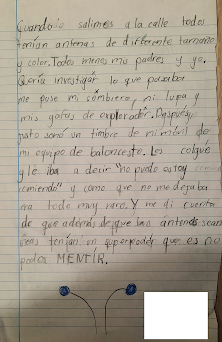 Cuando salimos a la calle todos
tenían antenas de differente tamaño
y color. Todos menos mis padres y yo.
Quería investigar lo que pasaba
me puse mi sombrero, mi lupa y
mis gafas de explorador. Después
justo sonó un timbre de mi móvil de
mi equipo de baloncesto. Les colgué
y le iba a decir "no puedo estoy
comiendo" y como que no me dejaba
era todo muy raro. Y me di cuenta
de que además de que las antenas sean
tenían un superpoder que es no
poder MENTIR.